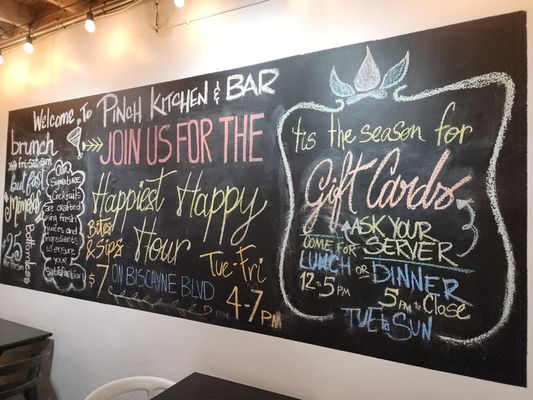 Welcome To Pinch Kitchen & BAR
brunch
fri·sat·sun
but fast
Mimosas
25
Bottomless
Signature
Cocktails
are crafted
using fresh
juices and
ingredients
to ensure
your
Satisfaction
JOIN US FOR THE
Happiest Happy
Hour
Bites
& Sips
$7
ON BISCAYNE BLVD
Tue-Fri
4-7 PM
'tis the season for
Gift Cards
ASK YOUR
SERVER
COME FOR
LUNCH or DINNER
12 to 5 PM
5 PM to Close
TUE to SUN